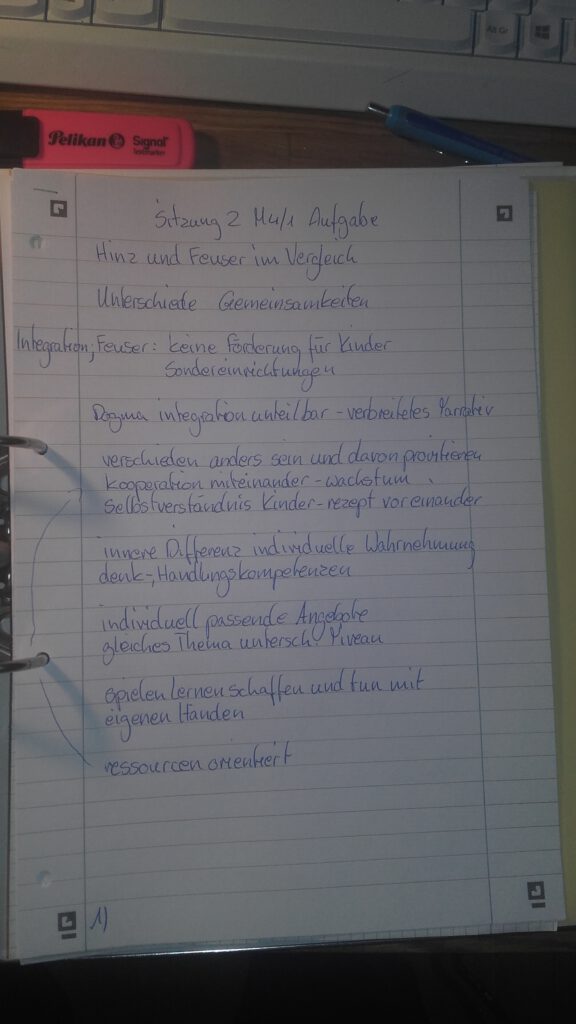 Alt Gr
Pelikan Signal
Textmarker
Sitzung 2 M4/1 Aufgabe
Hinz und Feuser im Vergleich
Unterschiede Gemeinsamkeiten
Integration, Feuser: keine Förderung für Kinder
Sondereinrichtungen
Dogma integration unteilbar - verbreitetes Narrativ
verschieden anders sein und davon provitieren
Kooperation miteinander - wachstum
Selbstverständnis Kinder - rezept voreinander
innere Differenz individuelle Wahrnehmung
denk-, Handlungskompetenzen
individuell passende Angebote
gleiches Thema untersch. Niveau
spielen lernen schaffen und tun mit
eigenen Händen
ressourcen orientiert
1)